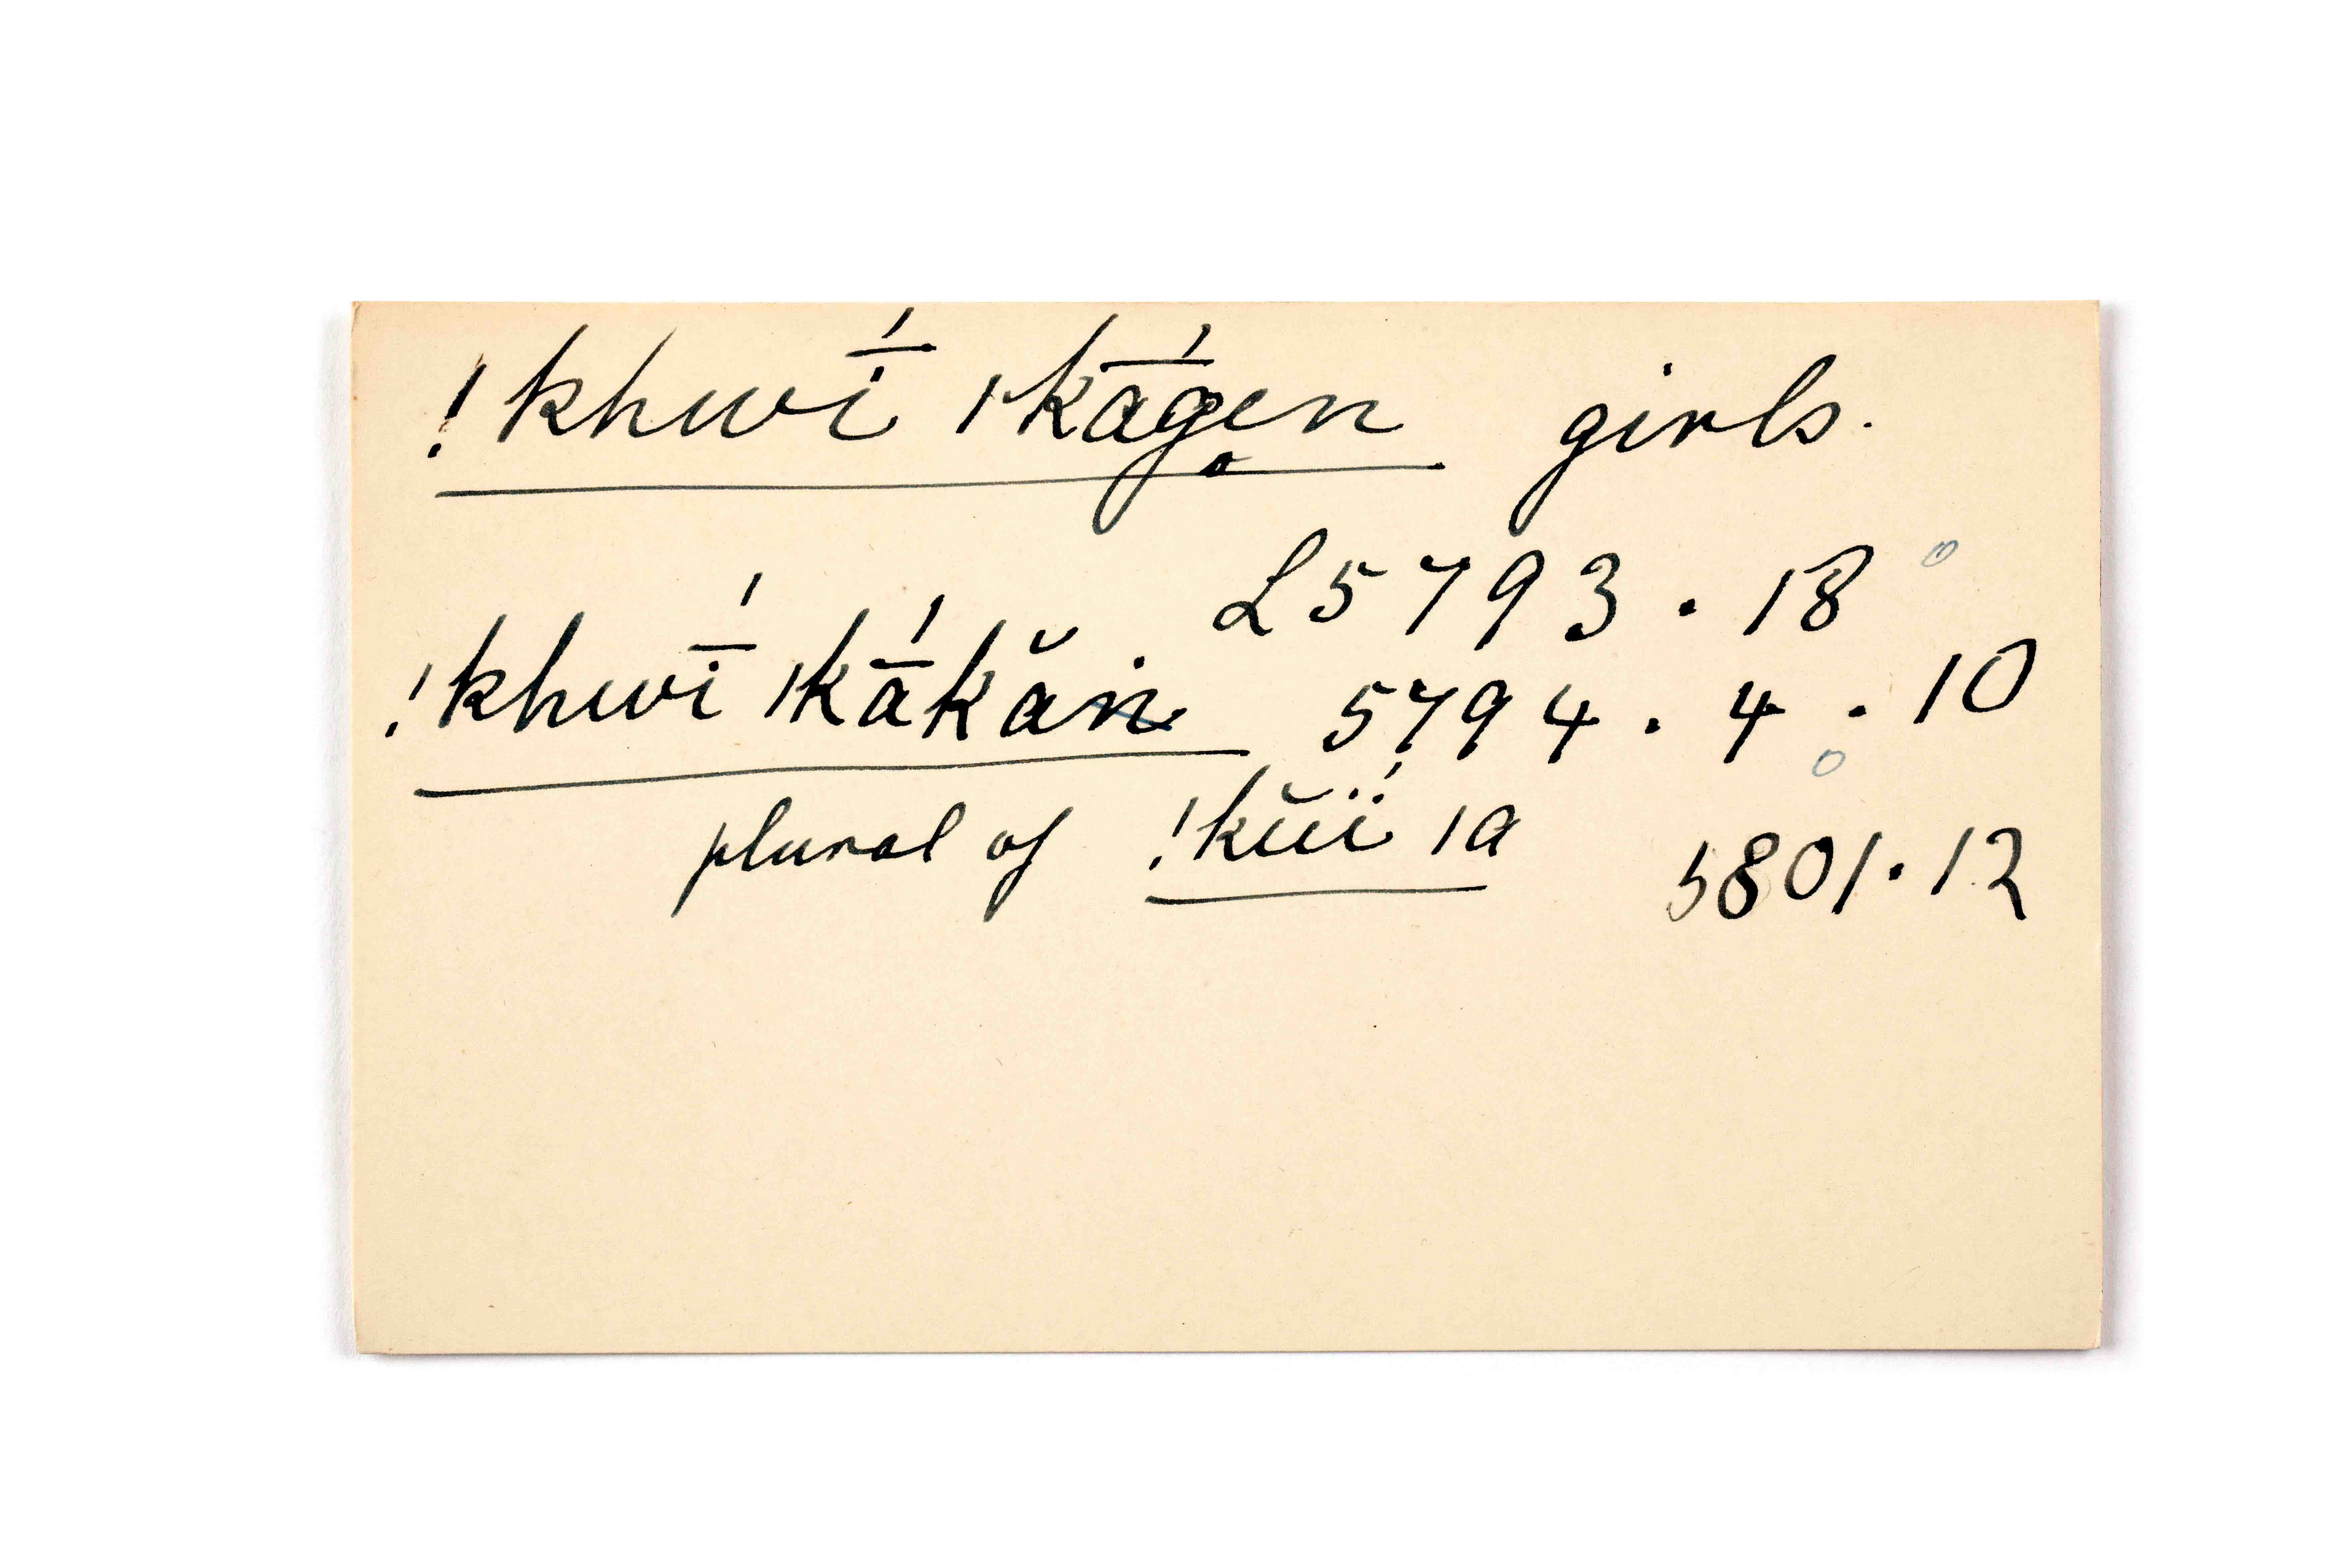 !khwī́ ǀkā́g̥en girls.
L5793 · 18
!khwī́ ǀkā́kăṅ 5794 · 4 · 10
plural of !kŭḯ ǀa 5801 · 12